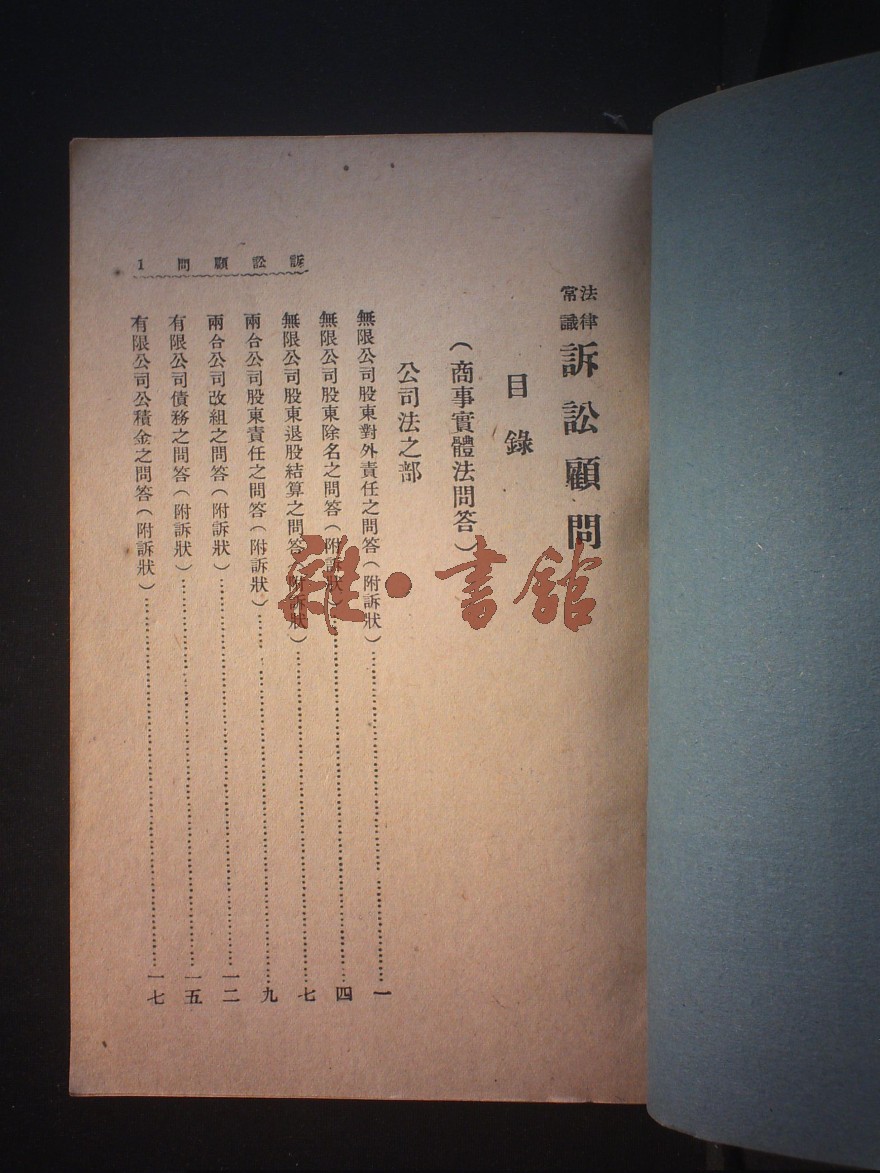 法律常識
訴訟顧問
目錄
（商事實體法問答）
公司法之部
無限公司股東對外責任之問答（附訴狀）……一
無限公司股東除名之問答（附訴狀）……四
無限公司股東退股結算之問答（附訴狀）……七
兩合公司股東責任之問答（附訴狀）……九
兩合公司改組之問答（附訴狀）……一二
有限公司債務之問答（附訴狀）……一五
有限公司公積金之問答（附訴狀）……一七
訴訟顧問 1
雜·書館